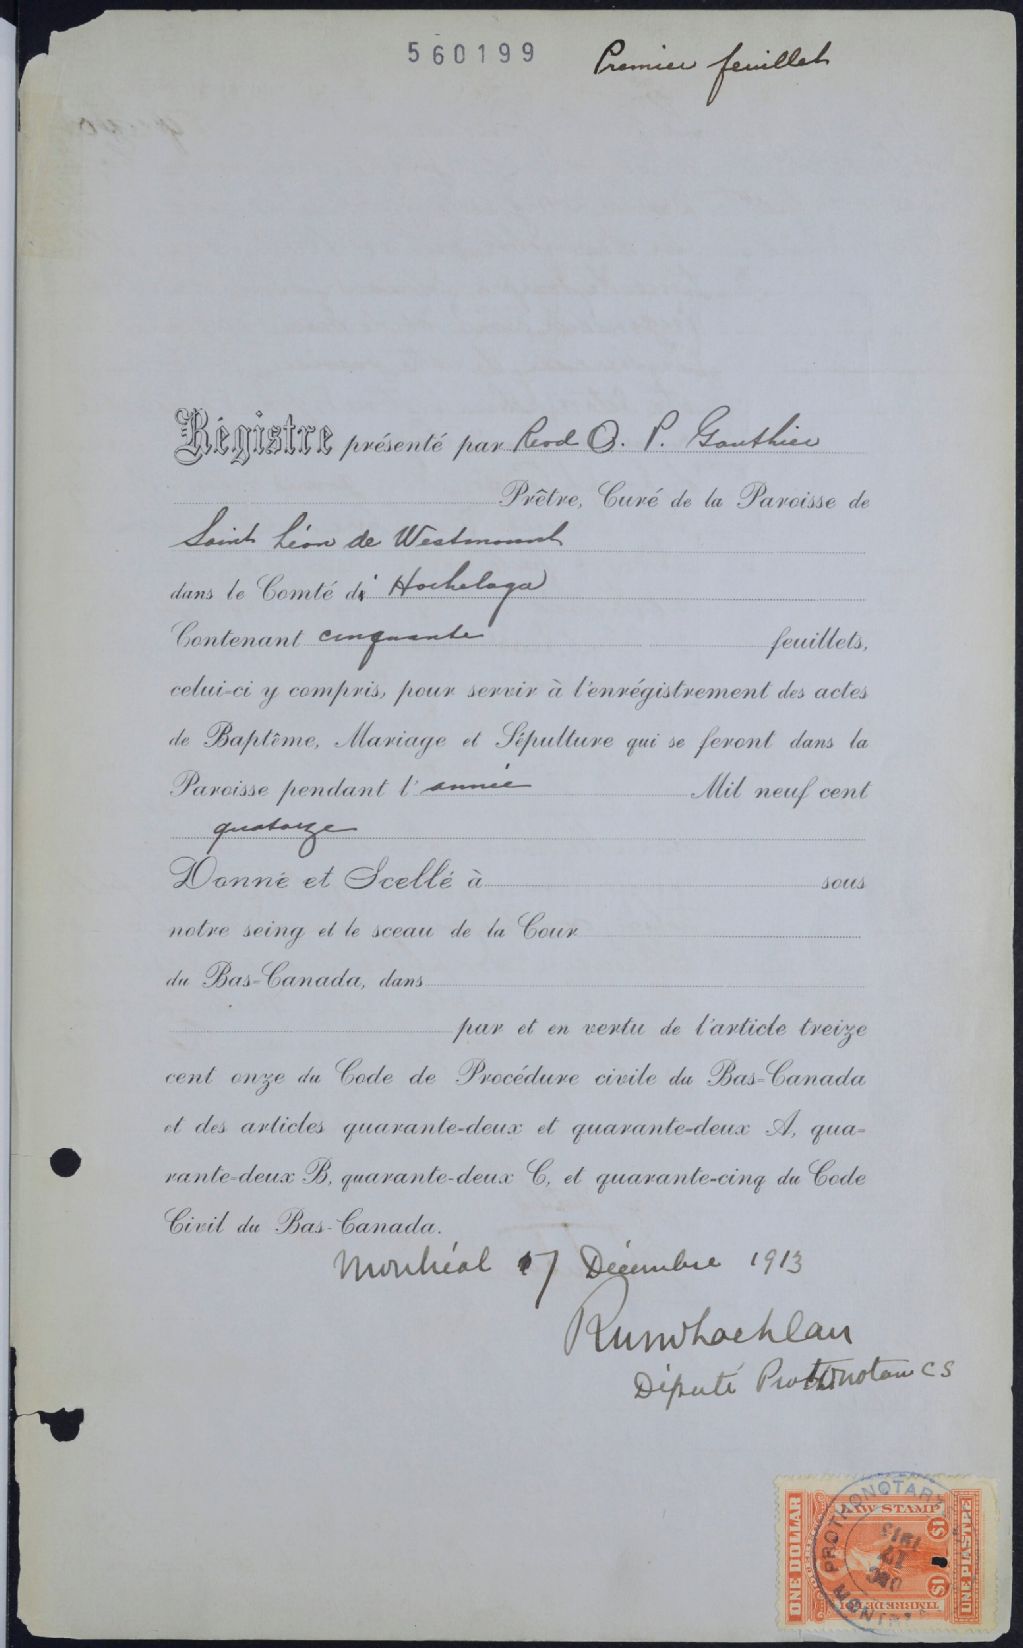 560199
Premier feuillet
Régistre présenté par Revd O. P. Gauthier
Prêtre, Curé de la Paroisse de
Saint Léon de Westmount
dans le Comté d' Hochelaga
Contenant cinquante feuillets,
celui-ci y compris, pour servir à l'enrégistrement des actes
de Baptême, Mariage et Sépulture qui se feront dans la
Paroisse pendant l'année Mil neuf cent
quatorze
Donné et Scellé à sous
notre seing et le sceau de la Cour
du Bas-Canada, dans
par et en vertu de l'article treize
cent onze du Code de Procédure civile du Bas-Canada
et des articles quarante-deux et quarante-deux A, qua-
rante-deux B, quarante-deux C, et quarante-cinq du Code
Civil du Bas-Canada.
Montréal 17 Décembre 1913
Député Protonotaire CS
ONE DOLLAR
LAW STAMP
$1 $1
TIMBRE DE LOI
UNE PIASTRE
PROTHONOTARY
DEC
17
1913